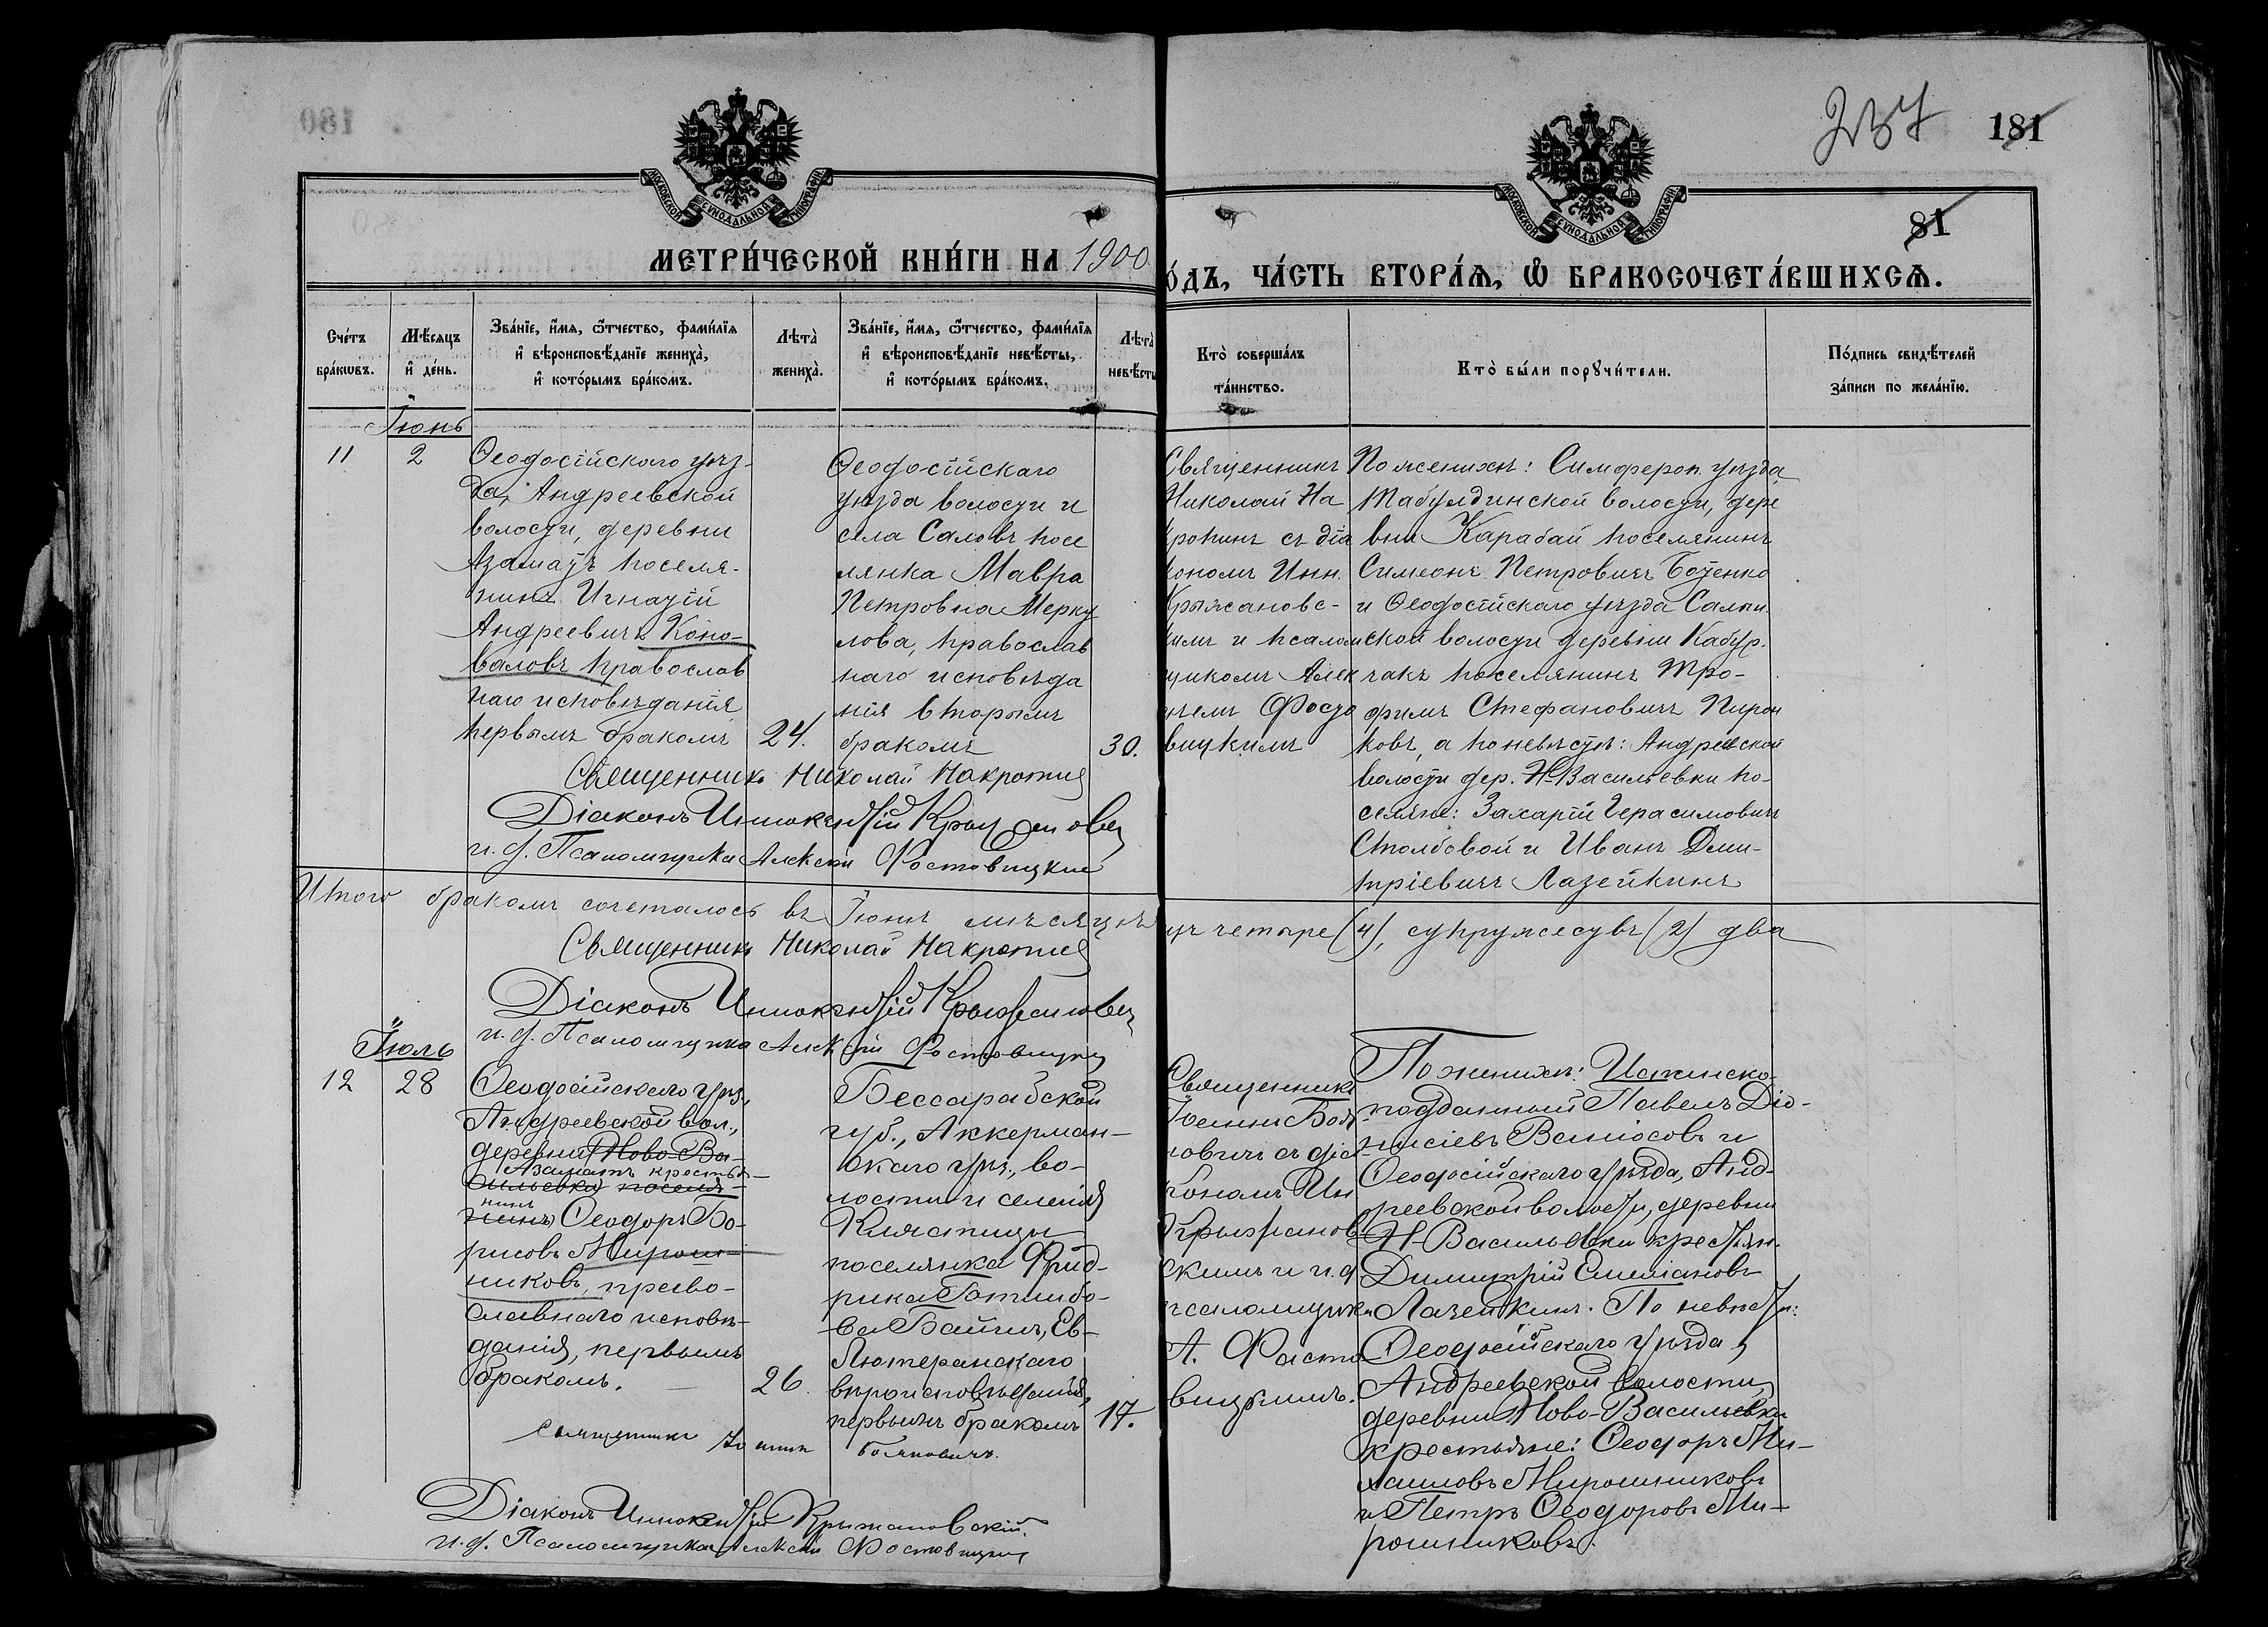 180
237 181
81
МОСКОВСКОЙ СѴНОДАЛЬНОЙ ТИПОГРАФІИ
МОСКОВСКОЙ СѴНОДАЛЬНОЙ ТИПОГРАФІИ
МЕТРИ́ЧЕСКОЙ КНИ́ГИ НА 1900
О́ДЪ, ЧА́СТЬ ВТОРА́Ѧ, Ѽ БРАКОСОЧЕТА́ВШИХСѦ.
Сче́тъ бра́кѡвъ.
Мѣ́сѧцъ и҆ де́нь.
Зва́нїе, и҆́мѧ, ѻ҆́тчество, фами́лїѧ
и҆ вѣроисповѣ́данїе жениха̀,
и҆ кото́рымъ бра́комъ.
Лѣта̀ жениха̀.
Зва́нїе, и҆́мѧ, ѻ҆́тчество, фами́лїѧ
и҆ вѣроисповѣ́данїе невѣ́сты,
и҆ кото́рымъ бра́комъ.
Лѣта̀
невѣ́сты
Кто̀ соверша́лъ
та́инство.
Кто̀ бы́ли порꙋчи́тели.
По́дпись свидѣ́телей
за́писи по жела́нїю.
Іюнь
11
2
Ѳеодосійскаго уѣз-
да, Андреевской
волости, деревни
Азаматъ поселя-
нинъ Игнатій
Андреевичъ Коно-
валовъ православ
наго исповѣданія
первымъ бракомъ
24.
Ѳеодосійскаго
уѣзда волости и
села Саловъ посе
лянка Мавра
Петровна Мерку
лова, православ
наго исповѣда
нія вторымъ
бракомъ
30.
Священникъ
Николай На
кропинъ съ діа
кономъ Инн.
Крыжановс-
кимъ и псалом
щикомъ Алек
сѣемъ Фосто
вицкимъ
По женихѣ: Симфероп. уѣзда
Табулдинской волости, дере
вни Карабай поселянинъ
Симеонъ Петровичъ Боценко
и Ѳеодосійскаго уѣзда Салын.
ской волости деревни Кабур.
чакъ поселянинъ Тро-
фимъ Стефановичъ Пирон
ковъ, а по невѣстѣ: Андреевской
волости дер. Н-Васильевки по-
селяне: Захарій Герасимовичъ
Столбовой и Иванъ Дми-
тріевичъ Лазейкинъ
Священникъ Николай Накропин
Діаконъ Иннокентій Крыжановск
и. д. Псаломщика Алексѣй Фостовицкій
Итого бракомъ сочеталось въ Іюнѣ мѣсяцѣ
цѣ четыре (4), супружествъ (2) два
Священникъ Николай Накропин
Діаконъ Иннокентій Крыжановск
и. д. Псаломщика Алексѣй Фостовицкій
Іюль
12
28
Ѳеодосійскаго уѣз.,
Андреевской вол.,
деревни Ново-Ва-
Азаматъ крестья-
сильевки поселя-
нинъ
нинъ Ѳеодоръ Бо-
рисовъ Мирош-
никовъ, право-
славнаго исповѣ-
данія, первымъ
бракомъ.
26.
Бессарабской
губ., Аккерман-
скаго уѣз., во-
лости и селенія
Клястицы
поселянка Фрид-
рика Готлибо-
ва Байчъ, Ев-
Лютеранскаго
вѣроисповѣданія,
первымъ бракомъ
17.
Священникъ
Іоаннъ Боя
новичъ съ діа
кономъ Ин
Крыжанов
скимъ и и.д
псаломщика
А. Фосто
вицкимъ.
По женихѣ: Испанско-
подданный Павелъ Діо-
нисіевъ Валіосовъ и
Ѳеодосійскаго уѣзда, Анд-
реевской волости, деревни
Н-Васильевки крестьян.
Димитрій Емеліановъ
Лазейкинъ. По невѣстѣ:
Ѳеодосійскаго уѣзда,
Андреевской волости,
деревни Ново-Васильевки
крестьяне: Ѳеодоръ Ми-
хаиловъ Мирошниковъ
и Петръ Ѳеодоровъ Ми-
рошниковъ.
Священникъ Іоаннъ Бояновичъ.
Діаконъ Иннокентій Крыжановскій.
и. д. Псаломщика Алексѣй Фостовицкій